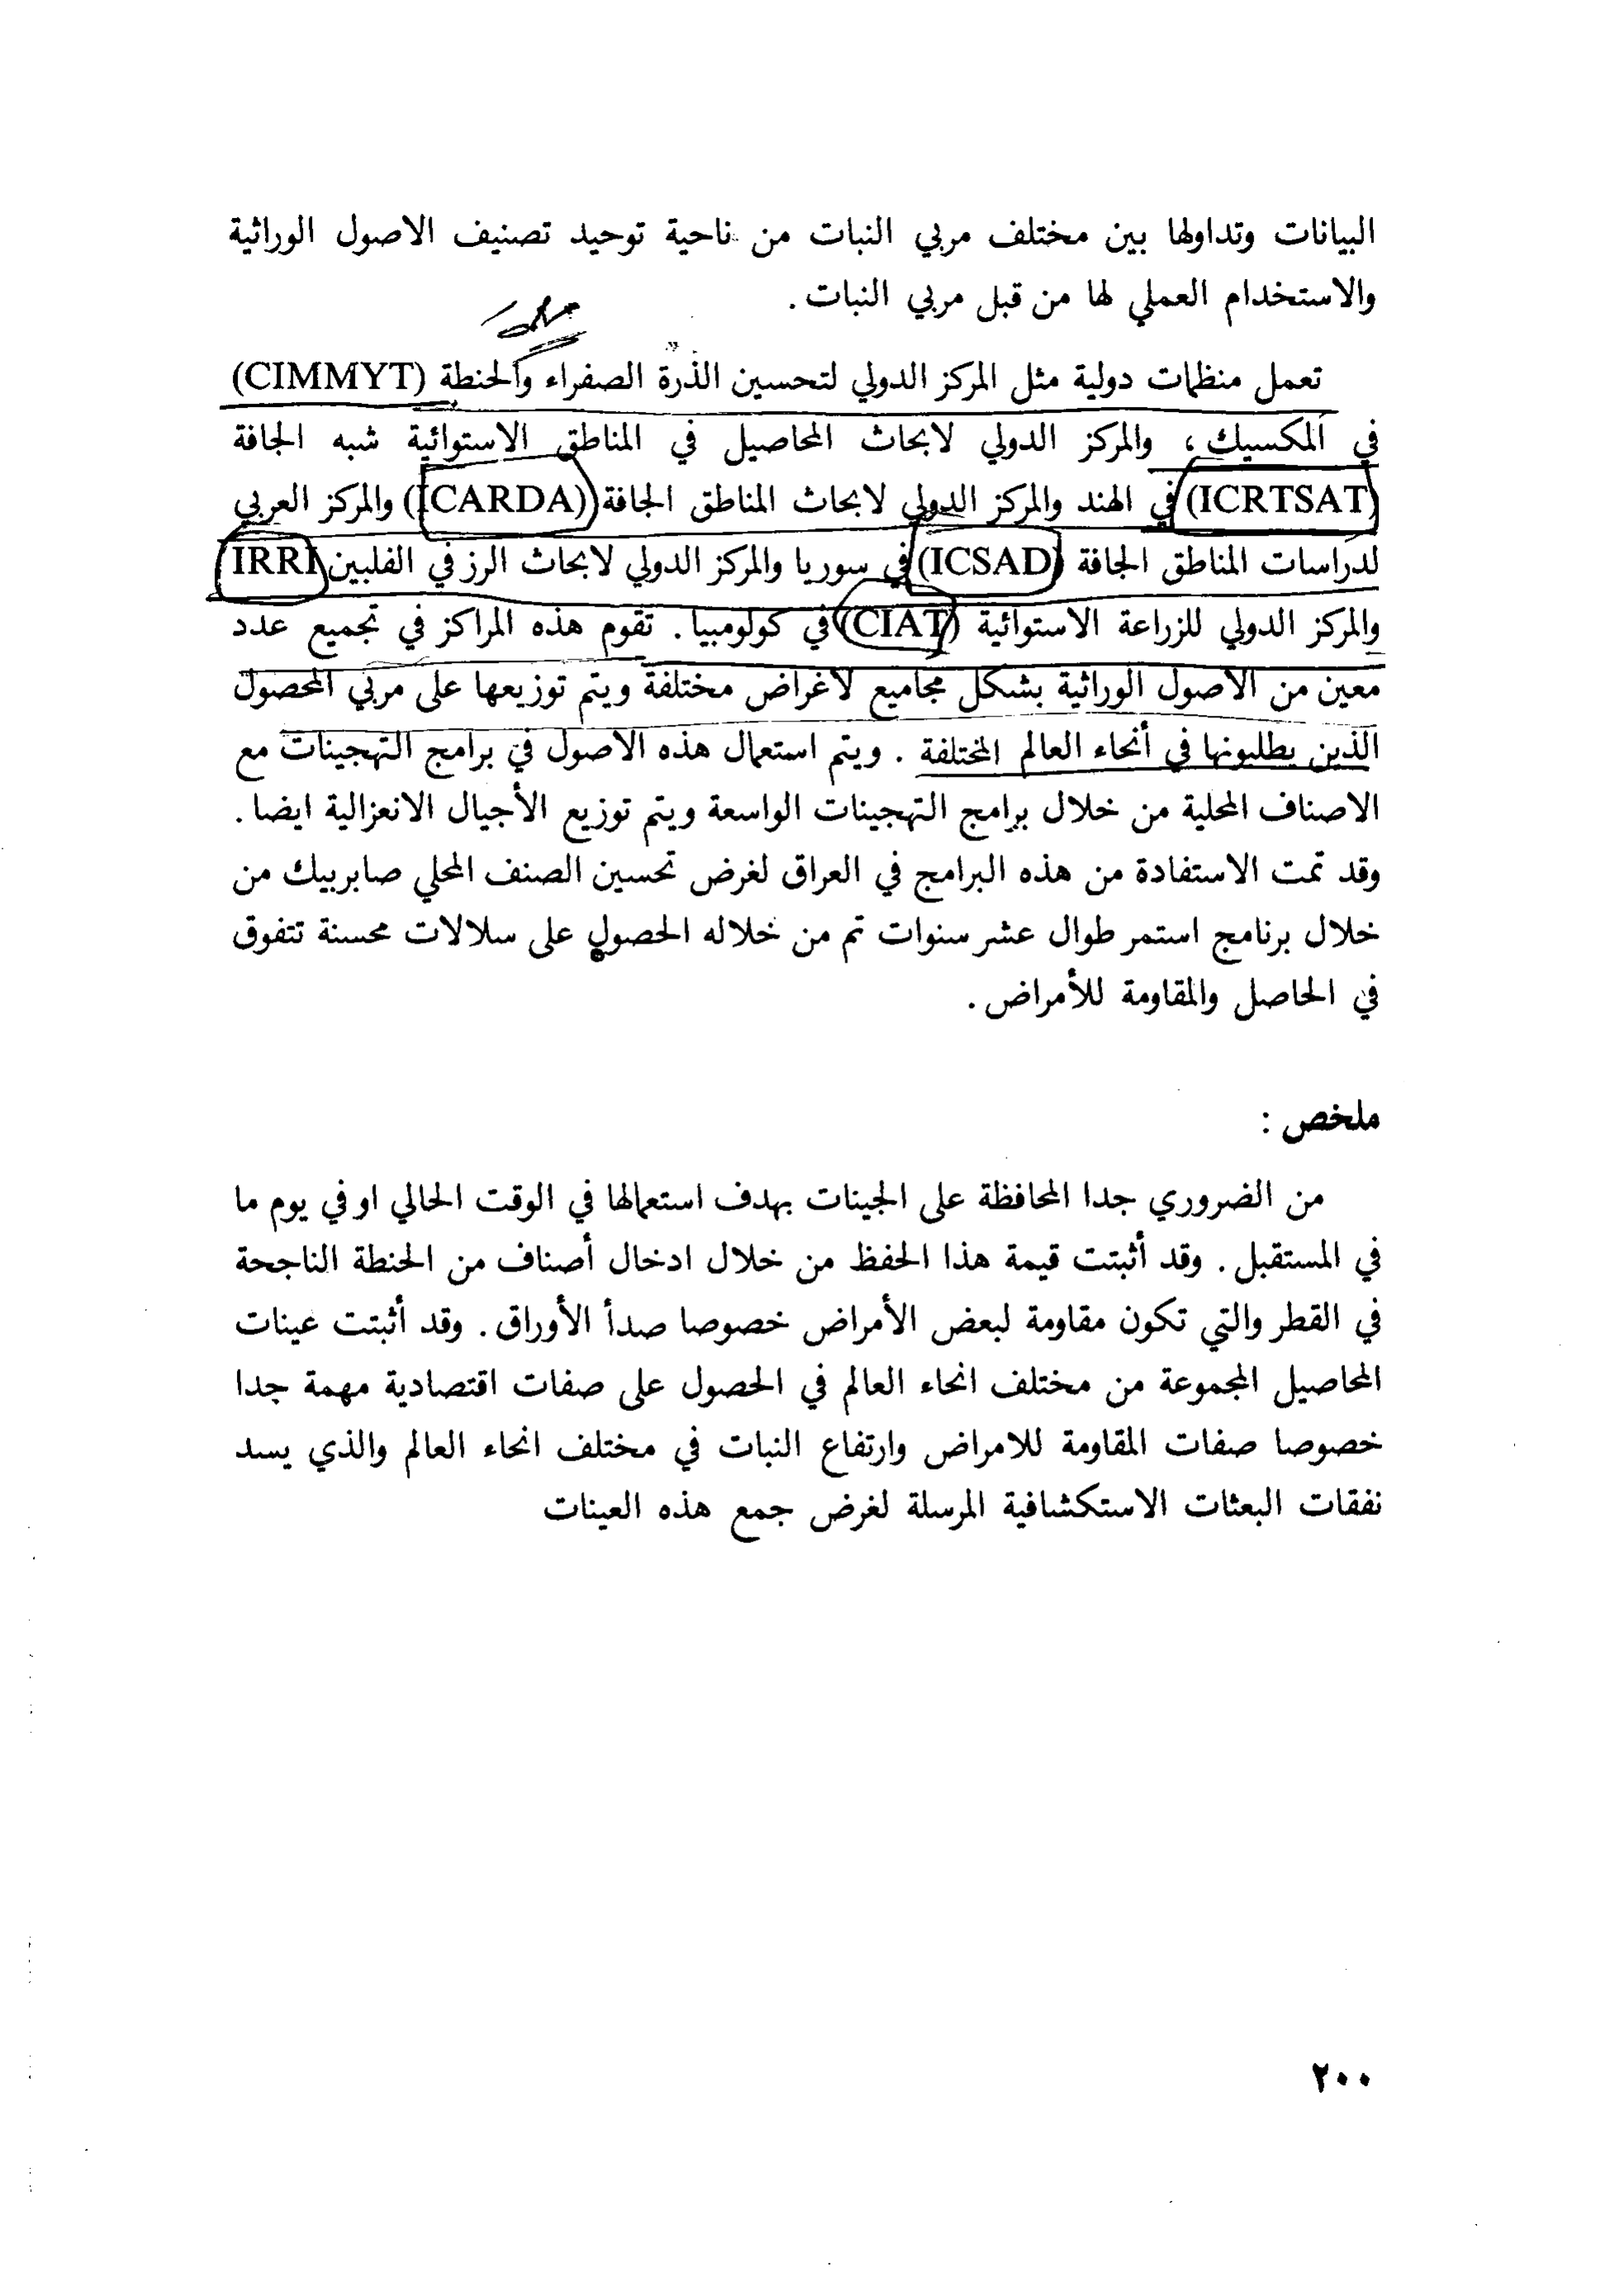 البيانات وتداولها بين مختلف مربي النبات من ناحية توحيد تصنيف الاصول الوراثية
والاستخدام العملي لها من قبل مربي النبات .
تعمل منظمات دولية مثل المركز الدولي لتحسين الذرة الصفراء والحنطة (CIMMYT)
في المكسيك ، والمركز الدولي لابحاث المحاصيل في المناطق الاستوائية شبه الجافة
(ICRTSAT) في الهند والمركز الدولي لابحاث المناطق الجافة (ICARDA) والمركز العربي
لدراسات المناطق الجافة (ICSAD) في سوريا والمركز الدولي لابحاث الرز في الفلبين IRRI
والمركز الدولي للزراعة الاستوائية (CIAT) في كولومبيا . تقوم هذه المراكز في تجميع عدد
معين من الاصول الوراثية بشكل مجاميع لاغراض مختلفة ويتم توزيعها على مربي المحصول
الذين يطلبونها في أنحاء العالم المختلفة . ويتم استعمال هذه الاصول في برامج التهجينات مع
الاصناف المحلية من خلال برامج التهجينات الواسعة ويتم توزيع الأجيال الانعزالية ايضا .
وقد تمت الاستفادة من هذه البرامج في العراق لغرض تحسين الصنف المحلي صابربيك من
خلال برنامج استمر طوال عشر سنوات تم من خلاله الحصول على سلالات محسنة تتفوق
في الحاصل والمقاومة للأمراض .
ملخص :
من الضروري جدا المحافظة على الجينات بهدف استعمالها في الوقت الحالي او في يوم ما
في المستقبل . وقد أثبتت قيمة هذا الحفظ من خلال ادخال أصناف من الحنطة الناجحة
في القطر والتي تكون مقاومة لبعض الأمراض خصوصا صدأ الأوراق . وقد أثبتت عينات
المحاصيل المجموعة من مختلف انحاء العالم في الحصول على صفات اقتصادية مهمة جدا
خصوصا صفات المقاومة للامراض وارتفاع النبات في مختلف انحاء العالم والذي يسد
نفقات البعثات الاستكشافية المرسلة لغرض جمع هذه العينات
٢٠٠